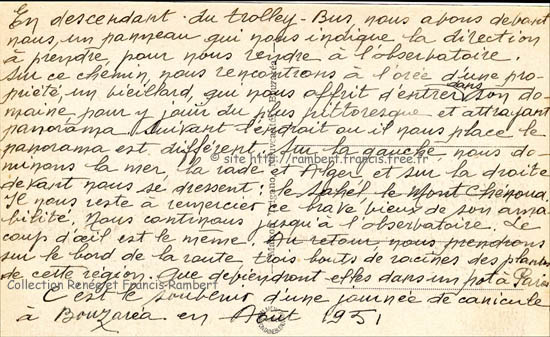 En descendant du trolley-Bus, nous avons devant
nous, un panneau qui nous indique la direction
à prendre, pour nous rendre à l'observatoire.
Sur ce chemin, nous rencontrons à l'orée d'une pro-
priété un vieillard, qui nous offrit d'entrer dans son do-
maine, pour y jouir du plus pittoresque et attrayant
panorama. Suivant l'endroit ou il nous place le
panorama est différent. Sur la gauche, nous do-
© site http://rambert.francis.free.fr
minons la mer, la rade et Alger, et sur la droite
devant nous se dressent: le Sahel le Mont Chenoua.
Il nous reste à remercier ce brave vieux de son ama-
bilité. Nous continuons jusqu'à l'observatoire. Le
coup d'œil est le même. Au retour, nous prendrons
sur le bord de la route trois bouts de racines des plantes
de cette région. Que deviendront elles dans un pot à Paris
Collection Renée et Francis-Rambert
C'est le souvenir d'une journée de canicule
à Bouzarea en Août 1951